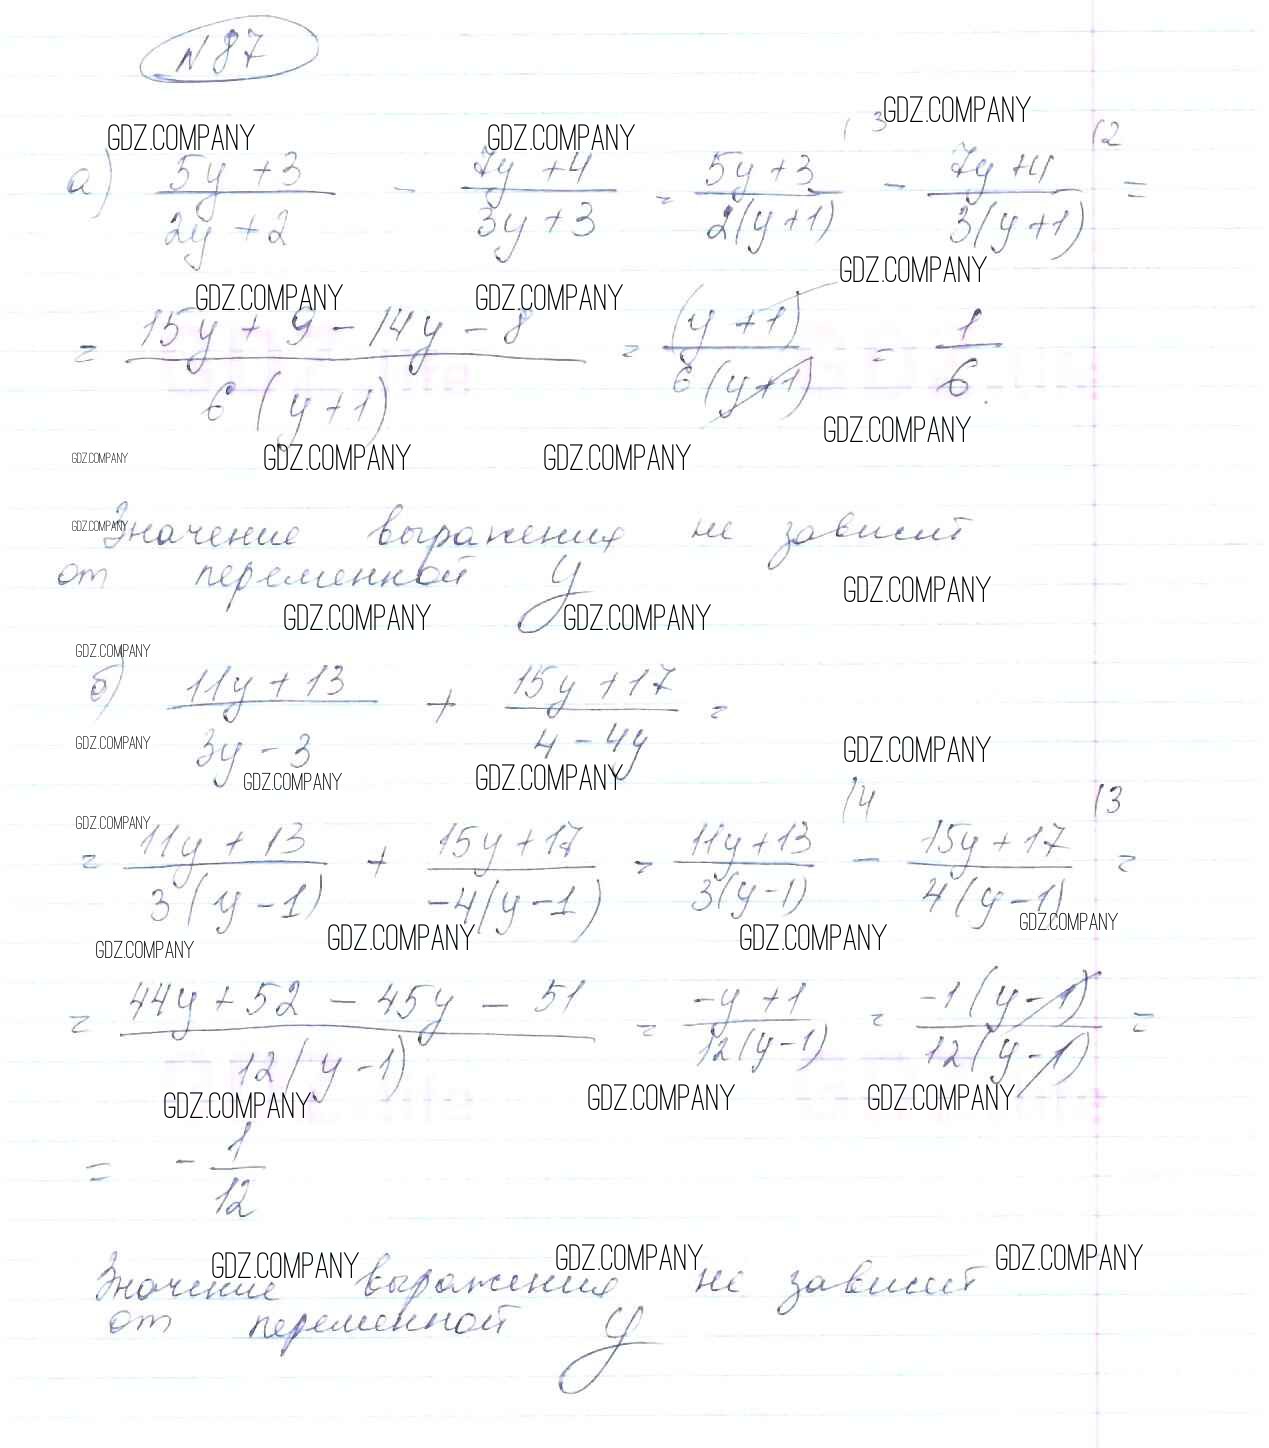 N 87
GDZ.COMPANY
GDZ.COMPANY GDZ.COMPANY
а) (5y+3)/(2y+2) - (7y+4)/(3y+3) = (5y+3)/(2(y+1)) (3 - (7y+4)/(3(y+1)) (2 =
GDZ.COMPANY
GDZ.COMPANY GDZ.COMPANY
= (15y+9-14y-8)/(6(y+1)) = (y+1)/(6(y+1)) = 1/6.
GDZ.COMPANY
GDZ.COMPANY GDZ.COMPANY GDZ.COMPANY
GDZ.COMPANY
Значение выражения не зависит
от переменной y
GDZ.COMPANY
GDZ.COMPANY GDZ.COMPANY
GDZ.COMPANY
б) (11y+13)/(3y-3) + (15y+17)/(4-4y) =
GDZ.COMPANY GDZ.COMPANY
GDZ.COMPANY GDZ.COMPANY
GDZ.COMPANY
= (11y+13)/(3(y-1)) + (15y+17)/(-4(y-1)) = (11y+13)/(3(y-1)) (4 - (15y+17)/(4(y-1)) (3 =
GDZ.COMPANY
GDZ.COMPANY GDZ.COMPANY GDZ.COMPANY
= (44y+52-45y-51)/(12(y-1)) = (-y+1)/(12(y-1)) = (-1(y-1))/(12(y-1)) =
GDZ.COMPANY GDZ.COMPANY GDZ.COMPANY
= -1/12
GDZ.COMPANY GDZ.COMPANY GDZ.COMPANY
Значение выражения не зависит
от переменной y